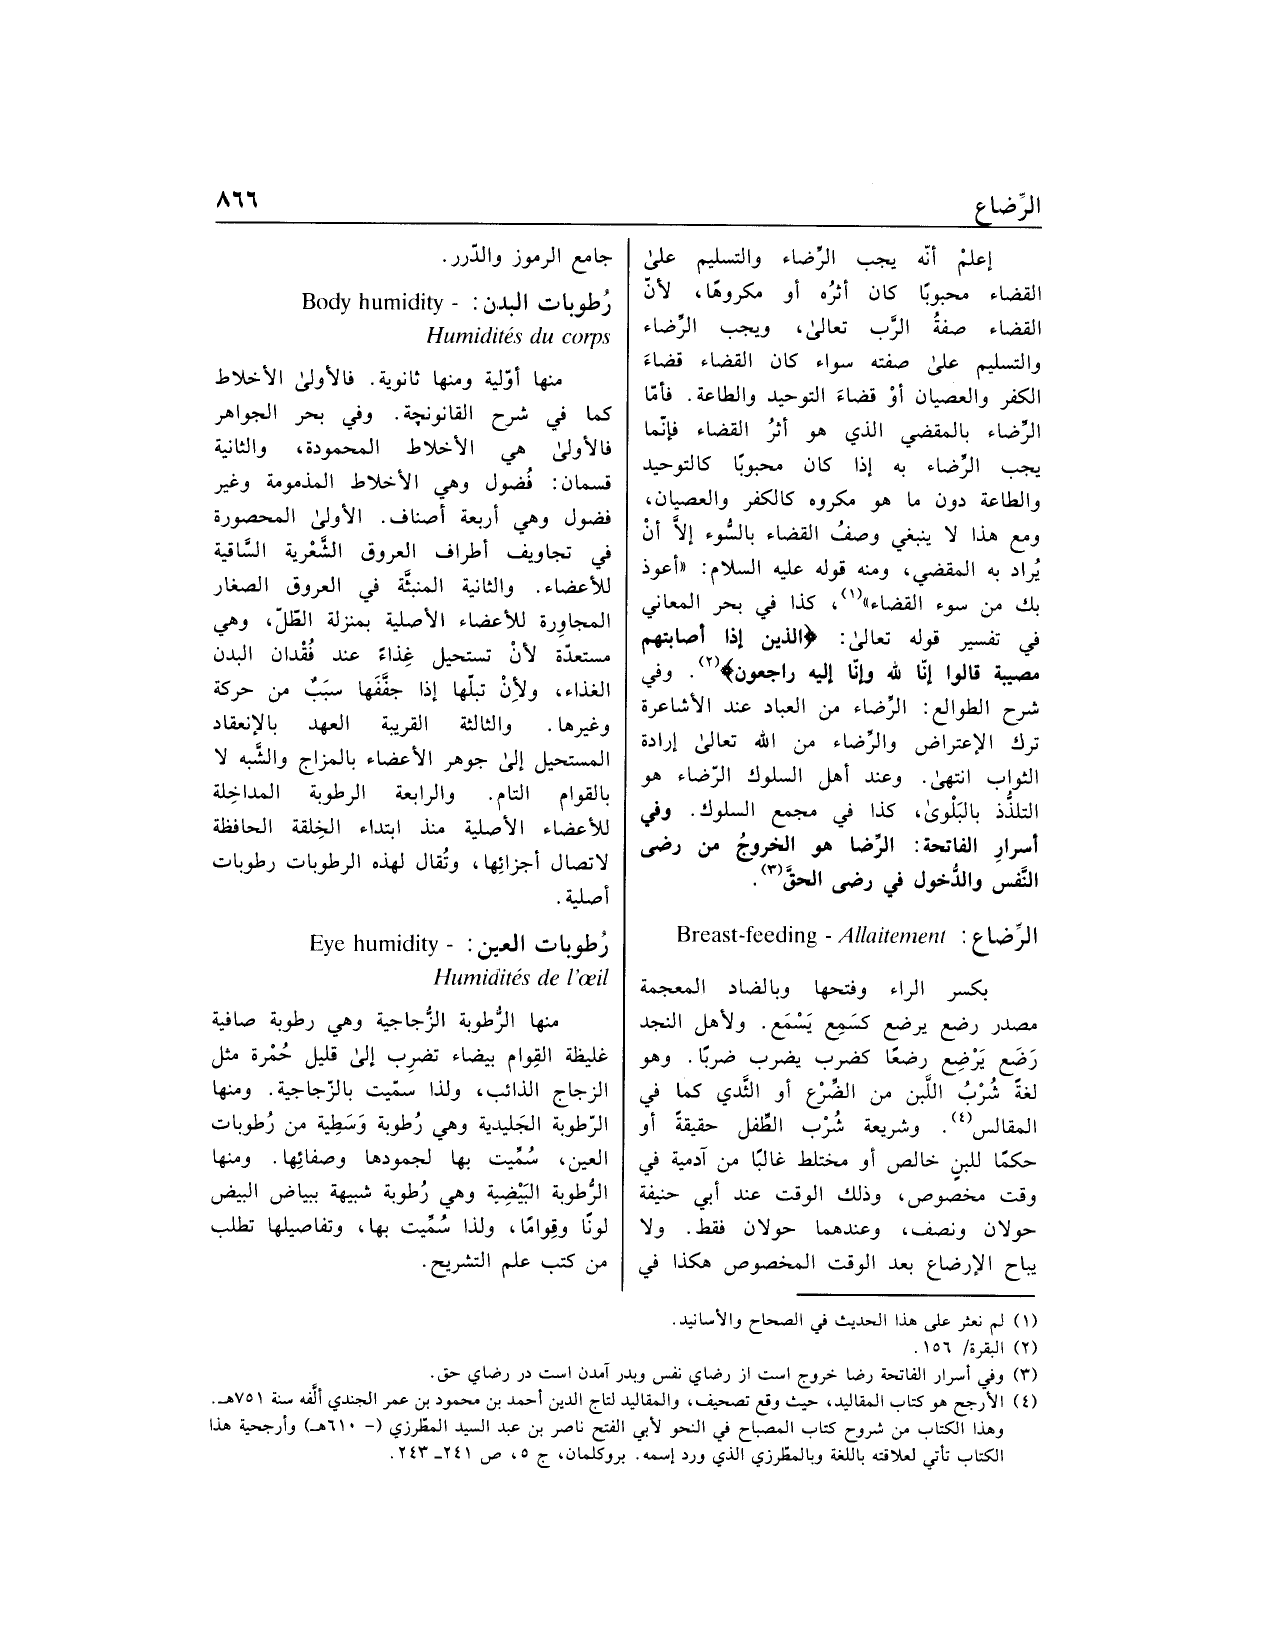 الرِّضاع
٨٦٦
إعلمْ أنّه يجب الرِّضاء والتسليم علىٰ
القضاء محبوبًا كان أثرُه أو مكروهًا، لأنّ
القضاء صفةُ الرَّب تعالىٰ، ويجب الرِّضاء
والتسليم علىٰ صفته سواء كان القضاء قضاءَ
الكفر والعصيان أوْ قضاءَ التوحيد والطاعة. فأمّا
الرِّضاء بالمقضي الذي هو أثرُ القضاء فإنّما
يجب الرِّضاء به إذا كان محبوبًا كالتوحيد
والطاعة دون ما هو مكروه كالكفر والعصيان،
ومع هذا لا ينبغي وصفُ القضاء بالسُّوء إلاَّ أنْ
يُراد به المقضي، ومنه قوله عليه السلام: «أعوذ
بك من سوء القضاء»(١)، كذا في بحر المعاني
في تفسير قوله تعالىٰ: ﴿الذين إذا أصابتهم
مصيبة قالوا إنّا لله وإنّا إليه راجعون﴾(٢). وفي
شرح الطوالع: الرِّضاء من العباد عند الأشاعرة
ترك الإعتراض والرِّضاء من الله تعالىٰ إرادة
الثواب انتهىٰ. وعند أهل السلوك الرّضاء هو
التلذُّذ بالبَلْوىٰ، كذا في مجمع السلوك. وفي
أسرارِ الفاتحة: الرِّضا هو الخروجُ من رضى
النَّفس والدُّخول في رضى الحقّ(٣).
الرِّضاع: Breast-feeding - Allaitement
بكسر الراء وفتحها وبالضاد المعجمة
مصدر رضع يرضع كسَمِع يَسْمَع. ولأهل النجد
رَضَع يَرْضِع رضعًا كضرب يضرب ضربًا. وهو
لغةً شُرْبُ اللَّبن من الضَّرْع أو الثَّدي كما في
المقالس(٤). وشريعة شُرْب الطِّفل حقيقةً أو
حكمًا للبنٍ خالص أو مختلط غالبًا من آدمية في
وقت مخصوص، وذلك الوقت عند أبي حنيفة
حولان ونصف، وعندهما حولان فقط. ولا
يباح الإرضاع بعد الوقت المخصوص هكذا في
جامع الرموز والدّرر.
رُطوبات البدن: - Body humidity
Humidités du corps
منها أوّلية ومنها ثانوية. فالأولىٰ الأخلاط
كما في شرح القانونچة. وفي بحر الجواهر
فالأولىٰ هي الأخلاط المحمودة، والثانية
قسمان: فُضول وهي الأخلاط المذمومة وغير
فضول وهي أربعة أصناف. الأولىٰ المحصورة
في تجاويف أطراف العروق الشَّعْرية السَّاقية
للأعضاء. والثانية المنبثَّة في العروق الصغار
المجاوِرة للأعضاء الأصلية بمنزلة الطّلّ، وهي
مستعدّة لأنْ تستحيل غِذاءً عند فُقْدان البدن
الغذاء، ولأِنْ تبلّها إذا جفَّفَها سبَبٌ من حركة
وغيرها. والثالثة القريبة العهد بالإنعقاد
المستحيل إلىٰ جوهر الأعضاء بالمزاج والشَّبه لا
بالقوام التام. والرابعة الرطوبة المداخِلة
للأعضاء الأصلية منذ ابتداء الخِلقة الحافظة
لاتصال أجزائها، وتُقال لهذه الرطوبات رطوبات
أصلية.
رُطوبات العين: - Eye humidity
Humidités de l'œil
منها الرُّطوبة الزُّجاجية وهي رطوبة صافية
غليظة القِوام بيضاء تضرِب إلىٰ قليل حُمْرة مثل
الزجاج الذائب، ولذا سمّيت بالزّجاجية. ومنها
الرّطوبة الجَليدية وهي رُطوبة وَسَطِية من رُطوبات
العين، سُمِّيت بها لجمودها وصفائها. ومنها
الرُّطوبة البَيْضِية وهي رُطوبة شبيهة ببياض البيض
لونًا وقِوامًا، ولذا سُمِّيت بها، وتفاصيلها تطلب
من كتب علم التشريح.
(١) لم نعثر على هذا الحديث في الصحاح والأسانيد.
(٢) البقرة/ ١٥٦.
(٣) وفي أسرار الفاتحة رضا خروج است از رضاي نفس وبدر آمدن است در رضاي حق.
(٤) الأرجح هو كتاب المقاليد، حيث وقع تصحيف، والمقاليد لتاج الدين أحمد بن محمود بن عمر الجندي ألَّفه سنة ٧٥١هـ.
وهذا الكتاب من شروح كتاب المصباح في النحو لأبي الفتح ناصر بن عبد السيد المطّرزي (- ٦١٠هـ) وأرجحية هذا
الكتاب تأتي لعلاقته باللغة وبالمطّرزي الذي ورد إسمه. بروكلمان، ج ٥، ص ٢٤١ـ ٢٤٣.